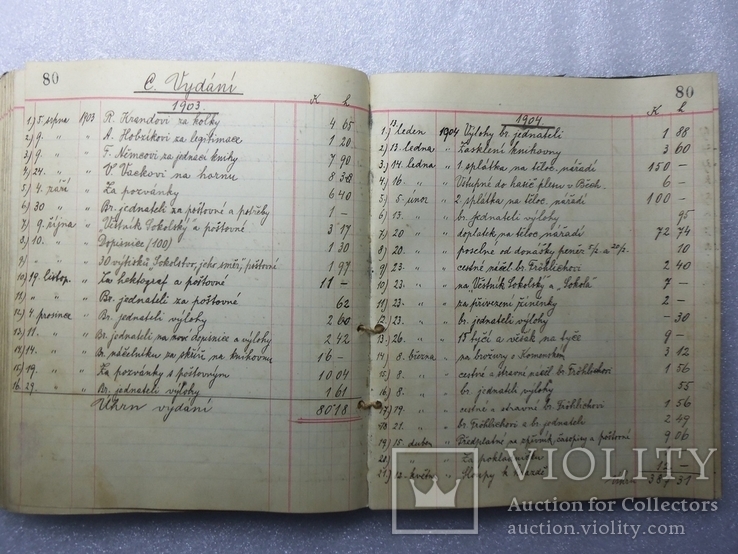 80
C. Vydání
1903. K h
1) 5. srpna 1903 R. Krandovi za kolky 4 65
2) 9. " " A. Hobzíkovi za legitimace 1 20
3) 9. " " F. Němcovi za jednací knihy 7 90
4) 24. " " V. Vackovi na hornu 8 38
5) 4. září " Za pozvánky 6 40
6) 30 " " Br. jednateli za poštovné a potřeby 1 —
7) 9. října " "Věstník Sokolský" a poštovné 3 17
8) 10. " " Dopisnice (100) 1 30
9) " " 30 výtisků "Sokolstvo, jeho směr", poštovní 1 97
10) 19. listop. " Za hektograf a poštovné 11 —
11) " " " Br. jednateli za poštovné 62
12) 4. prosince " Br. jednateli výlohy 2 60
13) 11. " " Br. jednateli na nové dopisnice a výlohy 2 42
14) 14. " " Br. náčelníku za skříň na knihovnu 16 —
15) 19. " " Za pozvánky s poštovným 10 04
16. 29. " " Br. jednateli výlohy 1 61
Úhrn vydání 80 18
80
1904. K h
1.) 13 leden 1904 Výlohy br. jednateli 1 88
2.) 13. ledna " Zasklení knihovny 3 60
3.) 14. ledna " 1 splátka na těloc. nářadí 150 —
4.) 16. " " Vstupné do hasič. plesu v 6 —
5.) 5. únor " 2 splátka na těloc. nářadí 100 —
6) 13. " " br. jednateli výlohy 95
7) 20 " " doplatek na těloc. nářadí 72 74
8) 20. " " poselné od donášky peněz 10
9) 23. " " cestné náčel. br. Fröhlichovi 2 40
10) 23. " " na "Věstník Sokolský" a "Sokola" 7 —
11) 23. " " za přivezení 2 —
12) 23. " " br. jednateli výlohy — 30
13) 26. " " 15 tyčí a věšák na tyče 9 —
14) 8. března " na brožury o Komenském 3 12
15) 8. " " cestné a stravní náčel. br. Fröhlichovi 1 56
16) 8. " " br. jednateli výlohy 55
17) 19. " " cestné a stravné br. Fröhlichovi 1 56
18. 21. " " br. Fröhlichovi a br. jednateli 2 49
19) 15. duben " Předplatné na zpěvník, časopisy a poštovné 9 06
20) " " " Za pokladničku
21) 12. květn " Sloupy k hrazdě 12 —
387 31
VIOLITY
Auction for Collectors
auction.violity.com